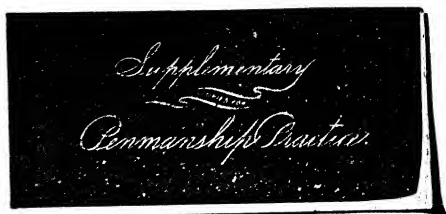 Supplementary
Penmanship Practice.